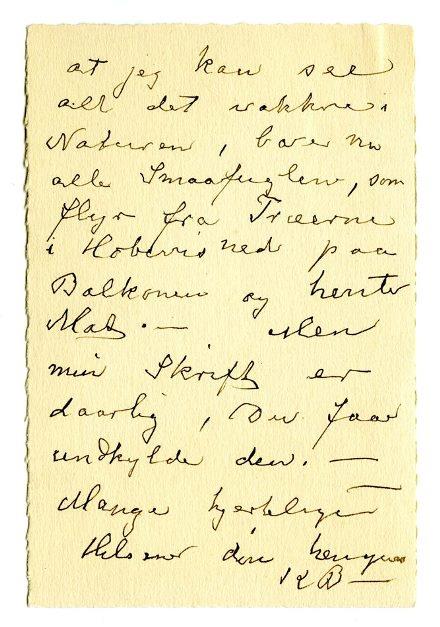 at jeg kan see
alt det vakkre i
Naturen, bare nu
alle Smaafuglene, som
flyr fra Træerne
i Hobevis ned paa
Balkonen og henter
Mat. — Men
min Skrift er
daarlig, Du faar
undskylde den. —
Mange hjertelige
Hilsener din hengivne
KB —